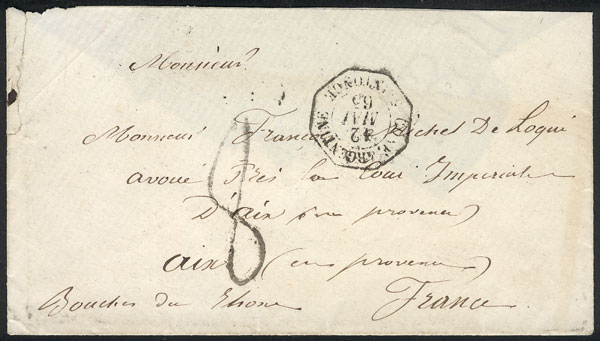 Monsieur
Monsieur François Michel De Loqui
avoué Près la Cour Imperiale
D'aix (en provence)
aix (en provence)
Bouches du Rhone
France
8
CONF. ARGENTINE
12
MAI
65